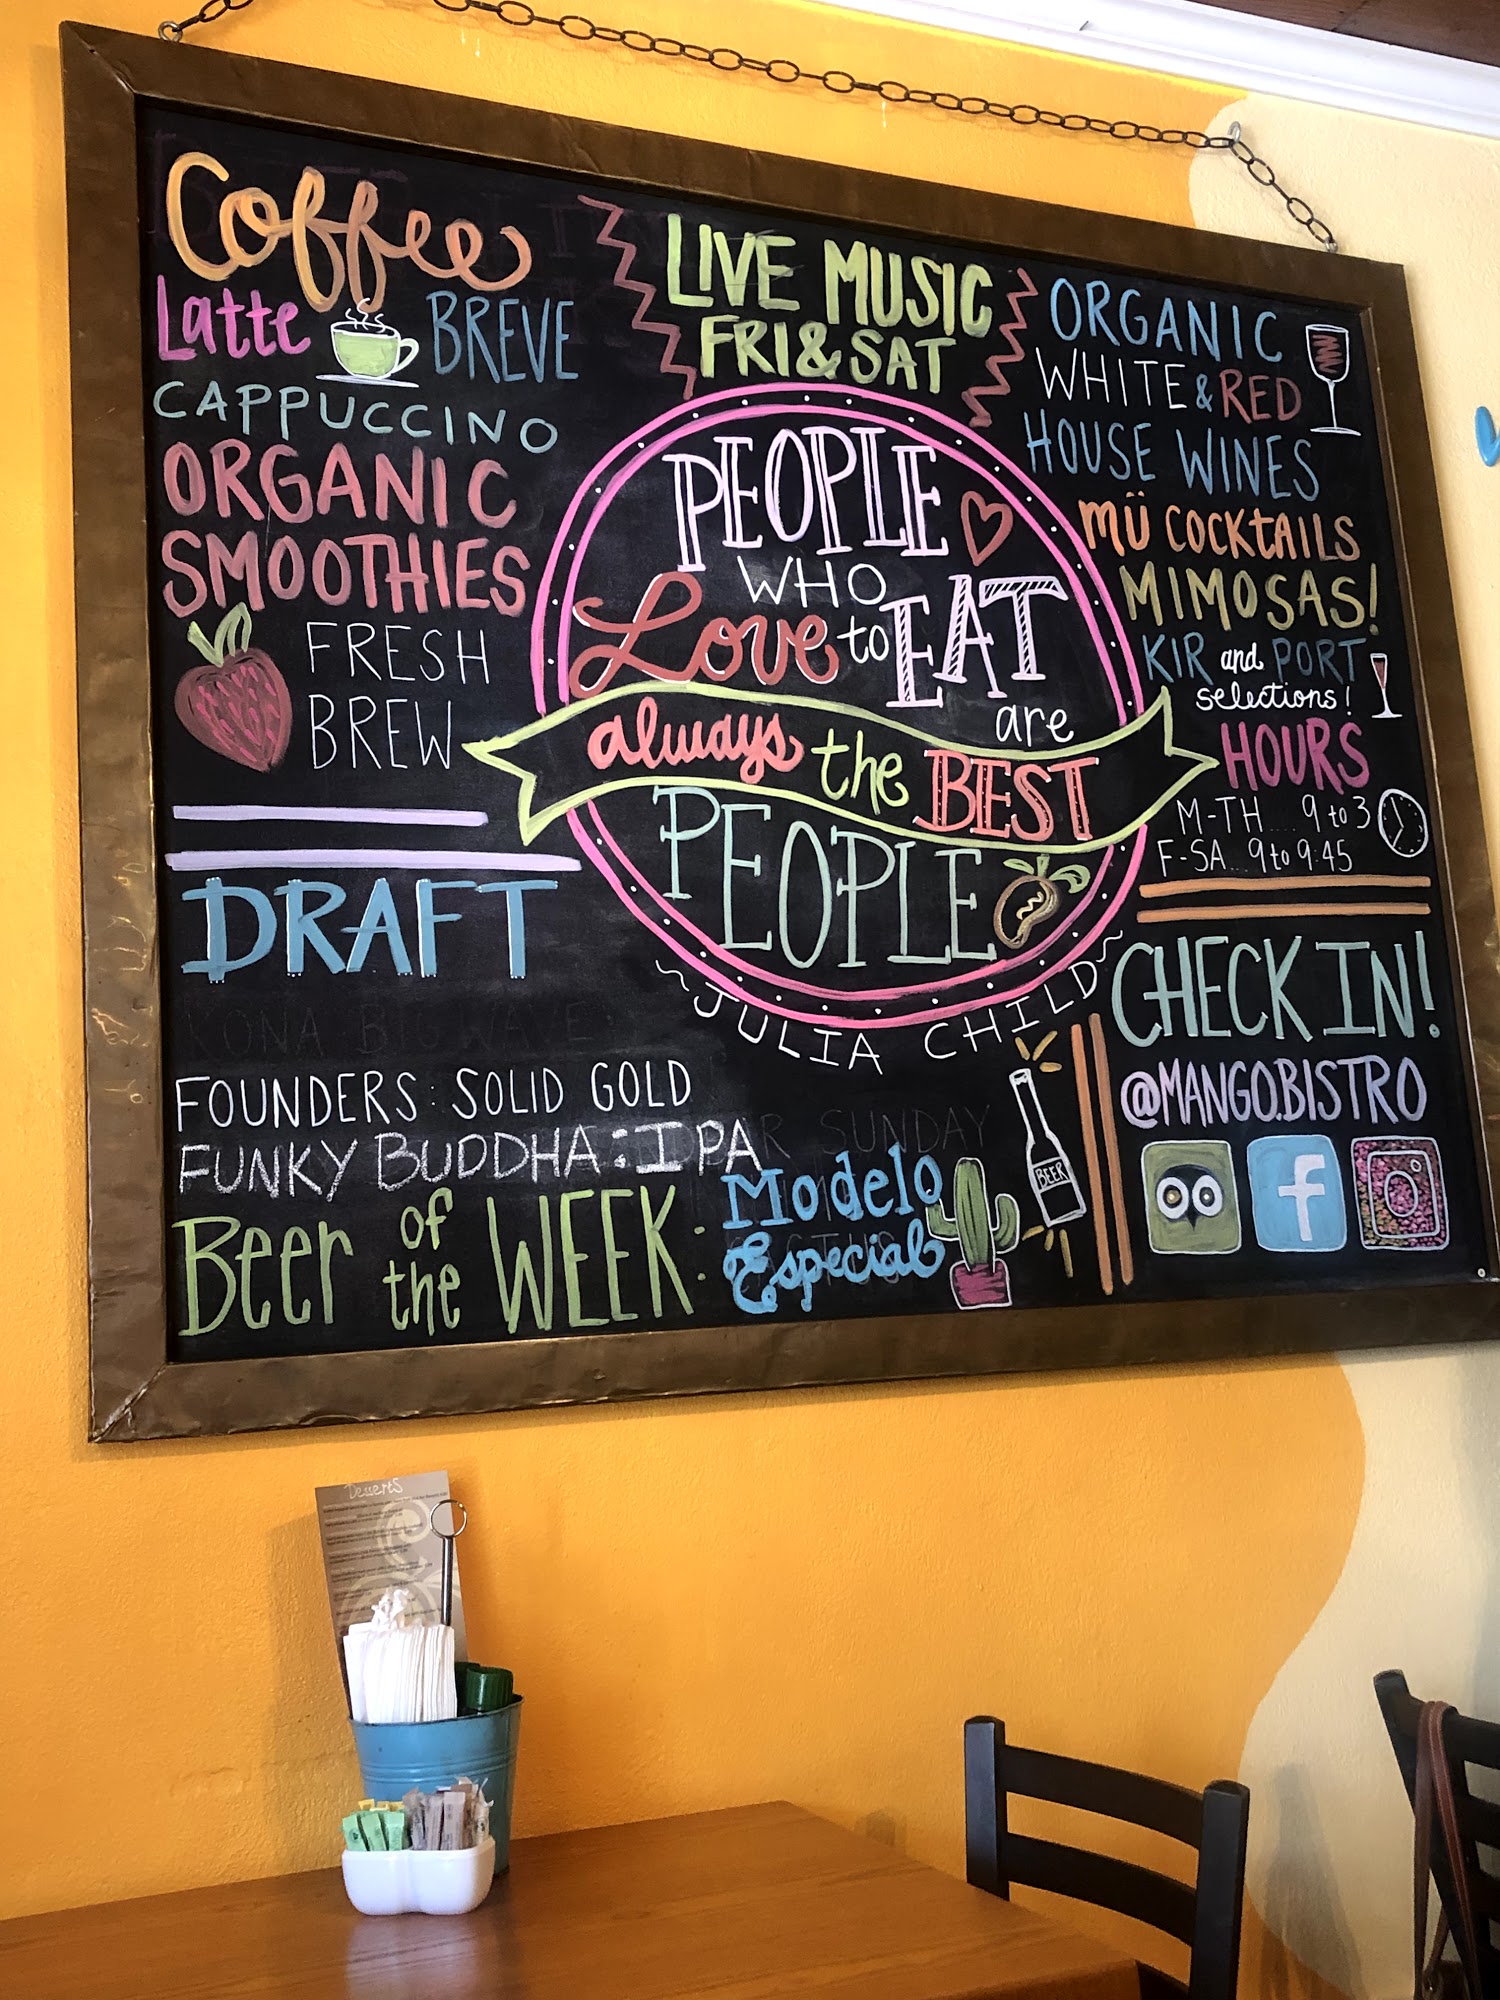 Coffee
Latte BREVE
CAPPUCCINO
ORGANIC
SMOOTHIES
FRESH
BREW
DRAFT
KONA BIG WAVE
FOUNDERS: SOLID GOLD
FUNKY BUDDHA: IPA
Beer of the WEEK: Modelo
Especial
LIVE MUSIC
FRI & SAT
PEOPLE
WHO
Love to EAT
are
always the BEST
PEOPLE
~JULIA CHILD~
SUNDAY
BEER
ORGANIC
WHITE & RED
HOUSE WINES
MÜ COCKTAILS
MIMOSAS!
KIR and PORT
selections!
HOURS
M-TH.... 9 to 3
F-SA... 9 to 9:45
CHECK IN!
@MANGO.BISTRO
f
Desserts